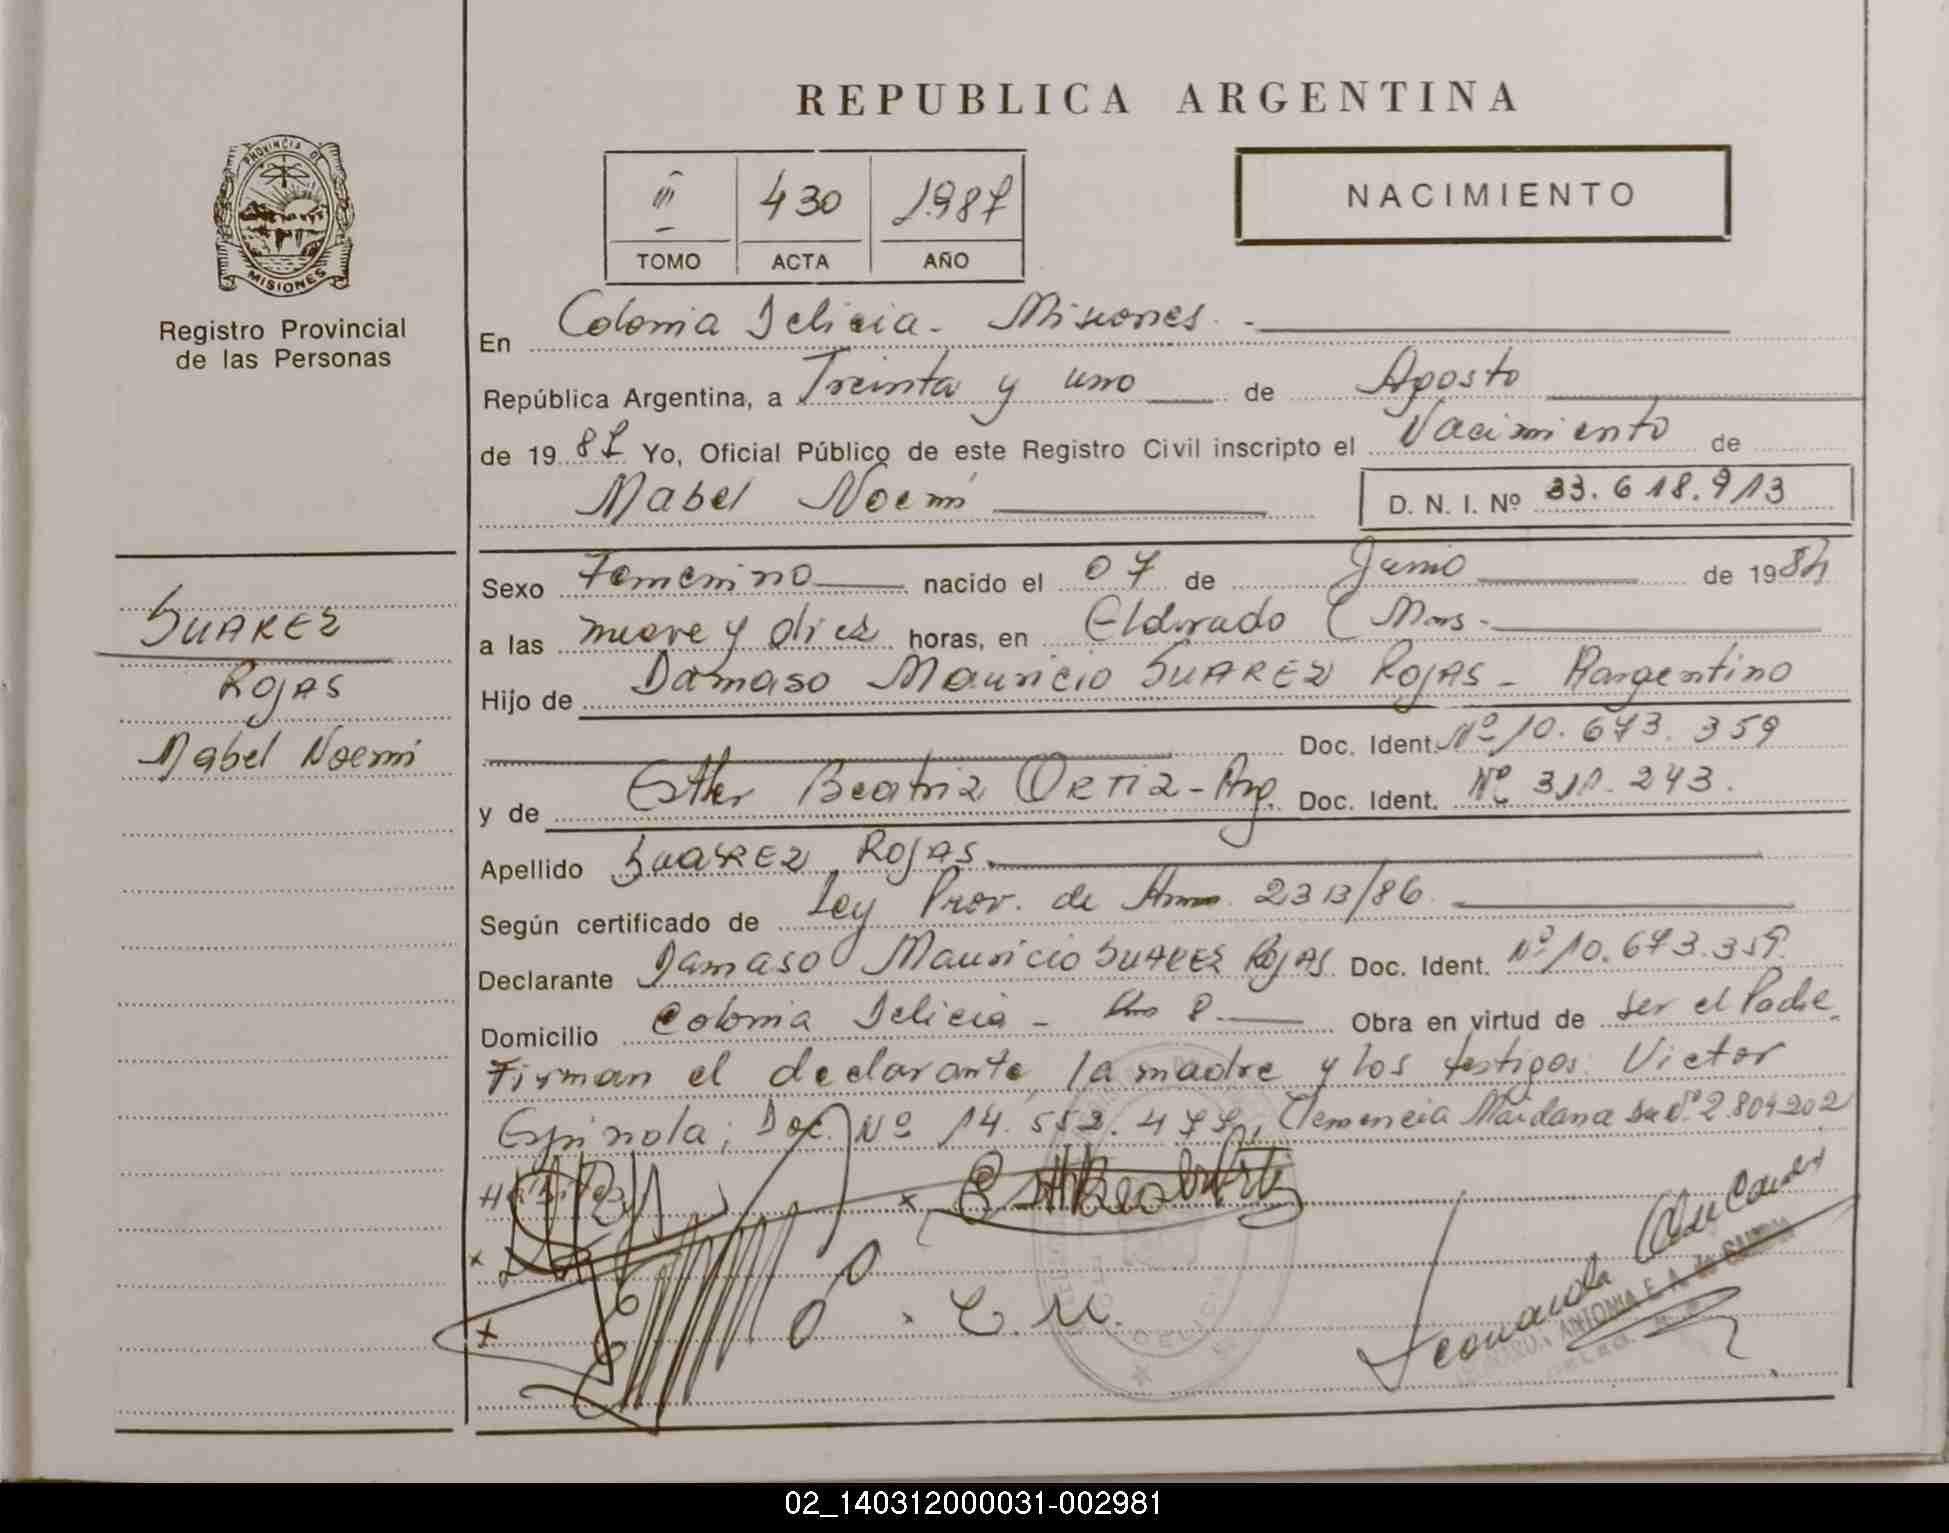 REPUBLICA ARGENTINA
PROVINCIA DE
MISIONES
Registro Provincial
de las Personas
III 430 1987
TOMO ACTA AÑO
NACIMIENTO
En Colonia Delicia - Misiones. -
República Argentina, a Treinta y uno de Agosto
de 1987 Yo, Oficial Público de este Registro Civil inscripto el Nacimiento de
Mabel Noemí D. N. I. Nº 33.618.913
SUAREZ
ROJAS
Mabel Noemi
Sexo Femenino nacido el 07 de Junio de 1984
a las nueve y diez horas, en Eldorado ( Mnes. -
Hijo de Damaso Mauricio SUAREZ ROJAS - Argentino
Doc. Ident. Nº 10.673.359
y de Esther Beatriz ORTIZ - Arg. Doc. Ident. Nº 311.243.
Apellido SUAREZ ROJAS.
Según certificado de Ley Prov. de 2313/86.
Declarante Damaso Mauricio SUAREZ ROJAS Doc. Ident. Nº 10.673.359.
Domicilio Colonia Delicia - 8. Obra en virtud de ser el Padre.
Firman el declarante, la madre y los testigos: Victor
Espinola; Doc. Nº 14.552.477, Clemencia Maidana 2.804.202
C. M.
02_140312000031-002981